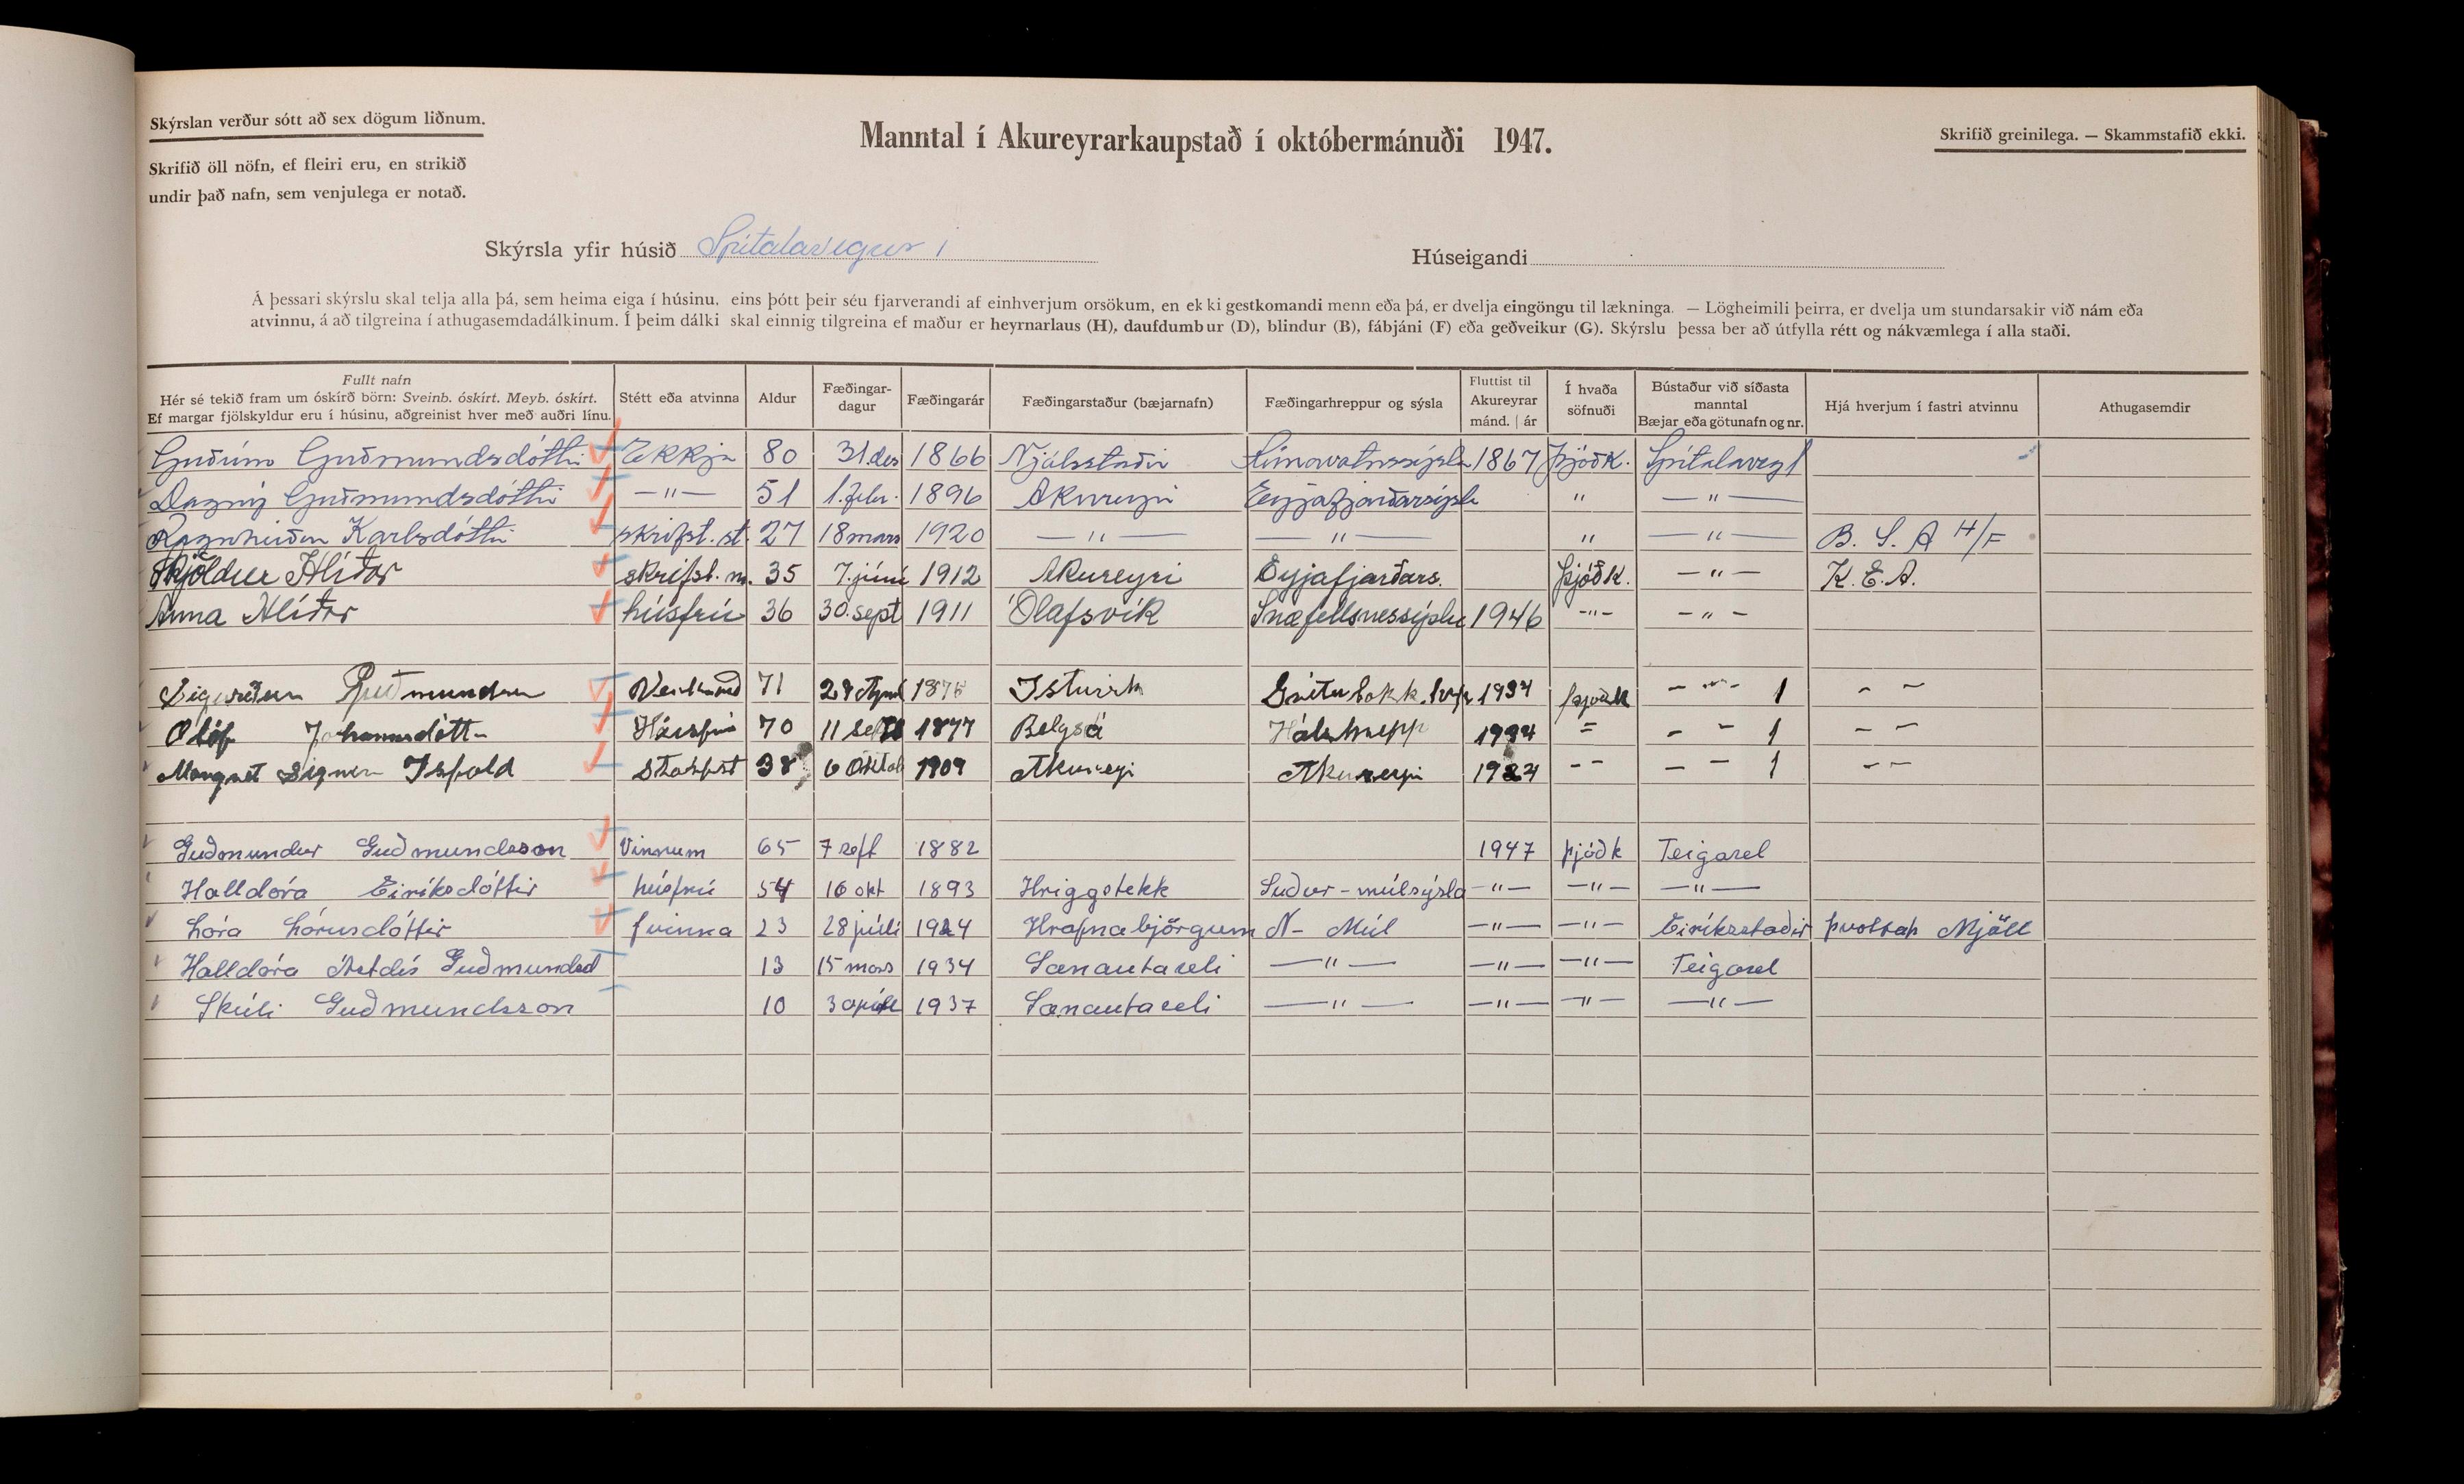 Skýrslan verður sótt að sex dögum liðnum.
Skrifið öll nöfn, ef fleiri eru, en strikið
undir það nafn, sem venjulega er notað.
Manntal í Akureyrarkaupstað í októbermánuði 1947.
Skrifið greinilega. — Skammstafið ekki.
Skýrsla yfir húsið Spítalavegur 1
Húseigandi
Á þessari skýrslu skal telja alla þá, sem heima eiga í húsinu, eins þótt þeir séu fjarverandi af einhverjum orsökum, en ekki gestkomandi menn eða þá, er dvelja eingöngu til lækninga. — Lögheimili þeirra, er dvelja um stundarsakir við nám eða
atvinnu, á að tilgreina í athugasemdadálkinum. Í þeim dálki skal einnig tilgreina ef maður er heyrnarlaus (H), daufdumbur (D), blindur (B), fábjáni (F) eða geðveikur (G). Skýrslu þessa ber að útfylla rétt og nákvæmlega í alla staði.
Fullt nafn Hér sé tekið fram um óskírð börn: Sveinb. óskírt. Meyb. óskírt. Ef margar fjölskyldur eru í húsinu, aðgreinist hver með auðri línu. Stétt eða atvinna Aldur Fæðingar-dagur Fæðingarár Fæðingarstaður (bæjarnafn) Fæðingarhreppur og sýsla Fluttist til Akureyrar mánd. | ár Í hvaða söfnuði Bústaður við síðasta manntal Bæjar eða götunafn og nr. Hjá hverjum í fastri atvinnu Athugasemdir
Guðrún Guðmundsdóttir Ekkja 80 31 des 1866 Njálsstaðir Húnavatnssýsla 1867 Þjóðk. Spítalaveg 1
Dagný Guðmundsdóttir —"— 51 1. febr. 1896 Akureyri Eyjafjarðarsýsla " —"—
Ragnheiður Karlsdóttir skrifst. st. 27 18 mars 1920 —"— —"— " —"— B. S. A H/F
Skjöldur Hlíðar skrifst. m. 35 7. júní 1912 Akureyri Eyjafjarðars. Þjóðk. —"— K. E. A.
Anna Hlíðar húsfrú 36 30. sept 1911 Ólafsvík Snæfellsnessýslu 1946 -"- -"-
Guðmundsson 71 1876 þjóðk - " - 1 - -
Ólöf Jóhannsdótt- Húsfrú 70 11 sept 1877 Belgsá Hálshrepp = - - 1 - -
Margrét Signý Ísfold 38 6 Októb 1909 Akureyri Akureyri - - - - 1 - -
Guðmundur Guðmundsson Vinnum 65 7 sept 1882 1947 þjóðk Teigasel
Halldóra Eiríksdóttir húsfrú 54 16 okt 1893 Hriggstekk Suður-múlsýsla —"— —"— —"—
Lára Lárusdóttir fvinna 23 28 júlí 1924 Hrafnabjörgum N- Múl —"— —"— Eiríksstaðir þvottah Mjöll
Halldóra Ástdís Guðmundsd 13 15 mars 1934 Sænautaseli —"— —"— —"— Teigasel
Skúli Guðmundsson 10 3 apríl 1937 Sænautaseli —"— —"— —"— —"—